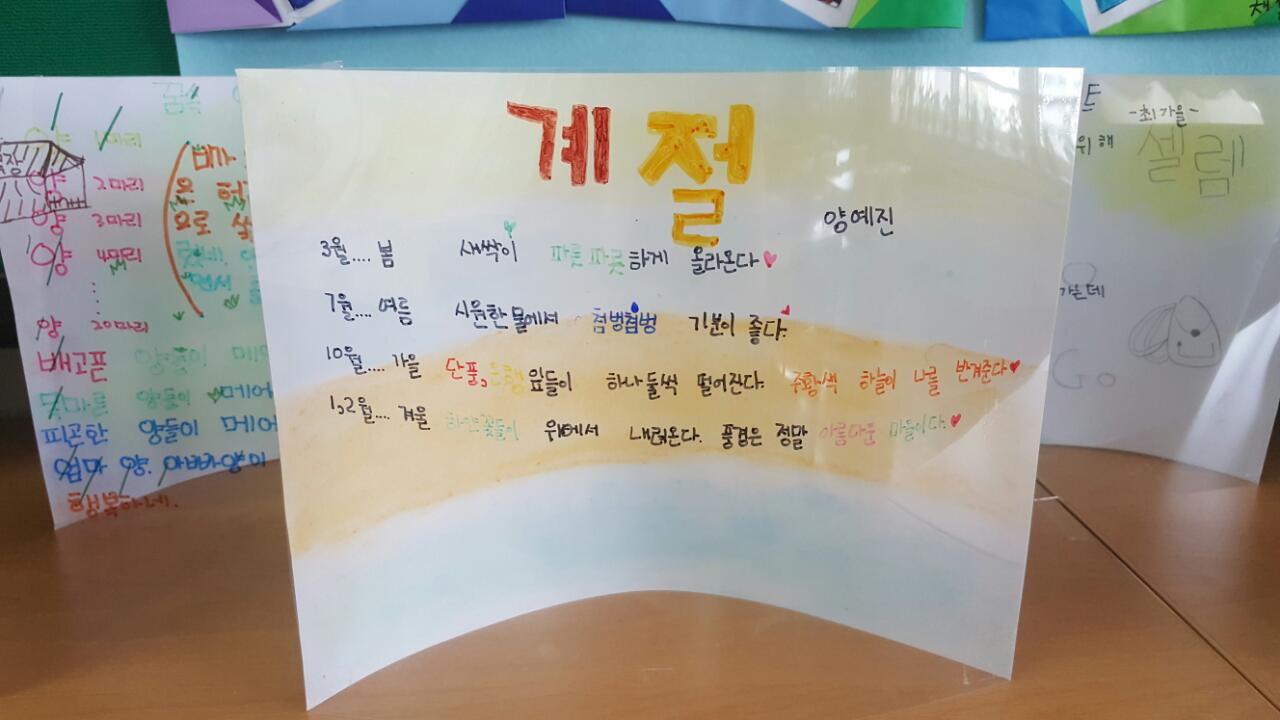 계절
양예진
3월.... 봄 새싹이 파릇파릇하게 올라온다
7월.... 여름 시원한 물에서 첨벙첨벙 기분이 좋다.
10월.... 가을 단풍, 은행잎들이 하나 둘씩 떨어진다. 주황색 하늘이 나를 반겨준다
1,2월.... 겨울 하얀꽃들이 위에서 내려온다. 풍경은 정말 아름다운 마을이다.
양 1마리
양 2마리
양 3마리
양 4마리
양 20마리
배고픈 양들이
목마른 양들이 메어
피곤한 양들이 메어
엄마 양. 아빠양이
행복하네.
-최가을-
위해
셀렘
가는데
Go